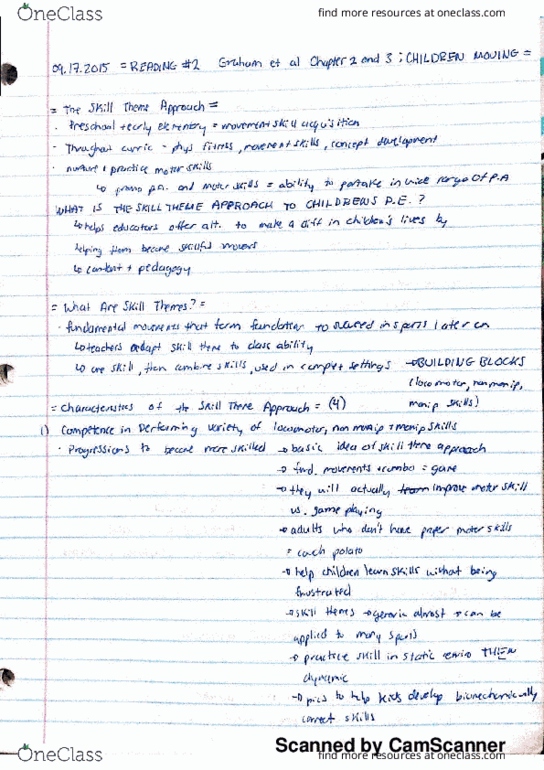 OneClass
find more resources at oneclass.com
09.17.2015 = READING #2 Graham et al Chapter 2 and 3 ; CHILDREN MOVING =
= The Skill Theme Approach =
· Preschool + early elementry = movement skill acquisition
· Throughout curric - phys fitness, movement skills, concept development
· nurture + practice motor skills
↳ promo p.a. and motor skills = ability to partake in wide range of P.A
WHAT IS THE SKILL THEME APPROACH TO CHILDREN'S P.E. ?
↳ helps educators offer alt. to make a diff in children's lives by
helping them become skillful movers
↳ content + pedagogy
= What Are Skill Themes? =
· fundamental movements that form foundation to succeed in sports later on
↳ teachers adapt skill theme to class ability
↳ one skill, then combine skills, used in complex settings → BUILDING BLOCKS
(locomotor, nonmanip,
manip skills)
= Characteristics of the Skill Theme Approach = (4)
1) Competence in Performing variety of locomotor, non manip + manip skills
· Progressions to become more skilled → basic idea of skill theme approach
→ fund. movements + combo = game
→ they will actually improve motor skill
vs. game playing
→ adults who don't have proper motor skills
= couch potato
→ help children learn skills without being
frustrated
→ skill themes → generic almost → can be
applied to many sports
→ practice skill in static THEN
dynamic
→ pics to help kids develop biomechanically
correct skills
Scanned by CamScanner
OneClass
find more resources at oneclass.com